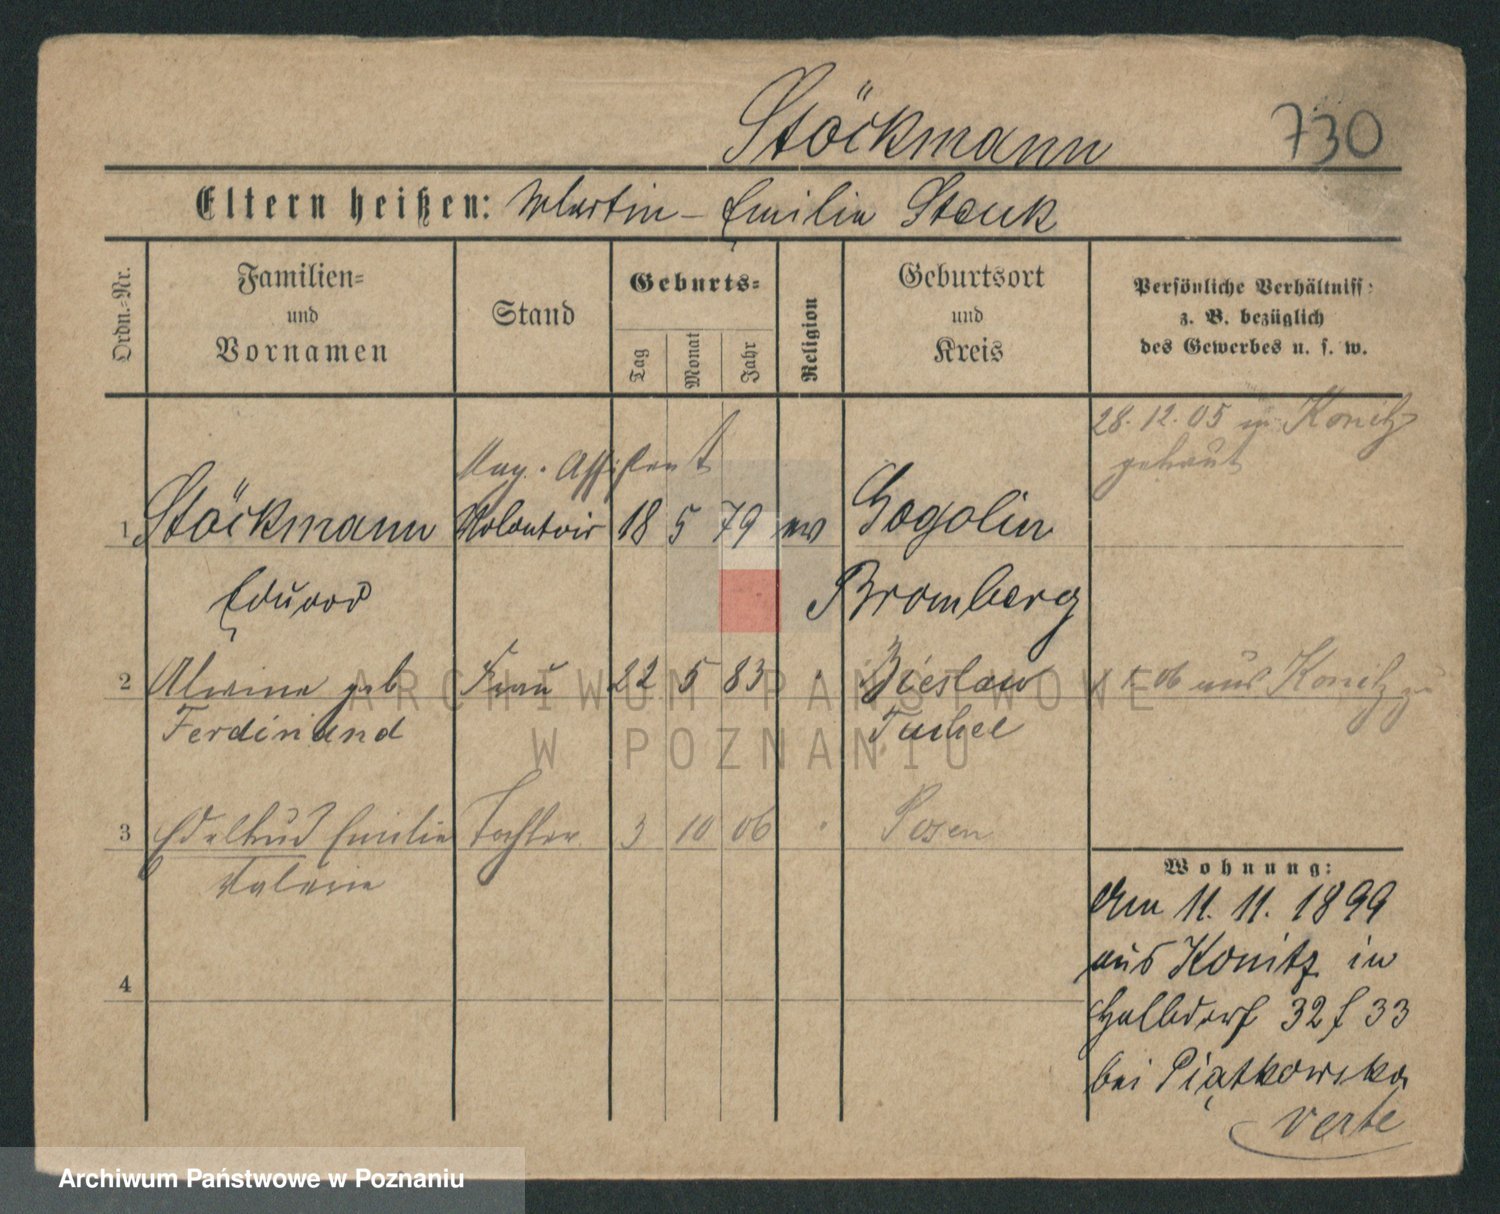 Stöckmann 730
Eltern heißen: Martin – Emilie Stenk
Ordn.=Nr.
Familien=
und
Vornamen
Stand
Geburts=
Tag
Monat
Jahr
Religion
Geburtsort
und
Kreis
Persönliche Verhältniss:
z. B. bezüglich
des Gewerbes u. s. w.
28. 12. 05 in Konitz
getraut
Mag. Assistent
1 Stöckmann Volontair 18 5 79 ev Gogolin
Eduard Bromberg
2 Alwine geb Frau 22 5 83 " Bieslaw
06 aus Konitz
Ferdinand Tuchel
3 Edeltrud Emilie Tochter 3 10 06 " Posen
Valerie
4
Wohnung:
Am 11. 11. 1899
aus Konitz in
Halbdorf 32 / 33
bei Piątkowska
verte
ARCHIWUM PAŃSTWOWE
W POZNANIU
Archiwum Państwowe w Poznaniu